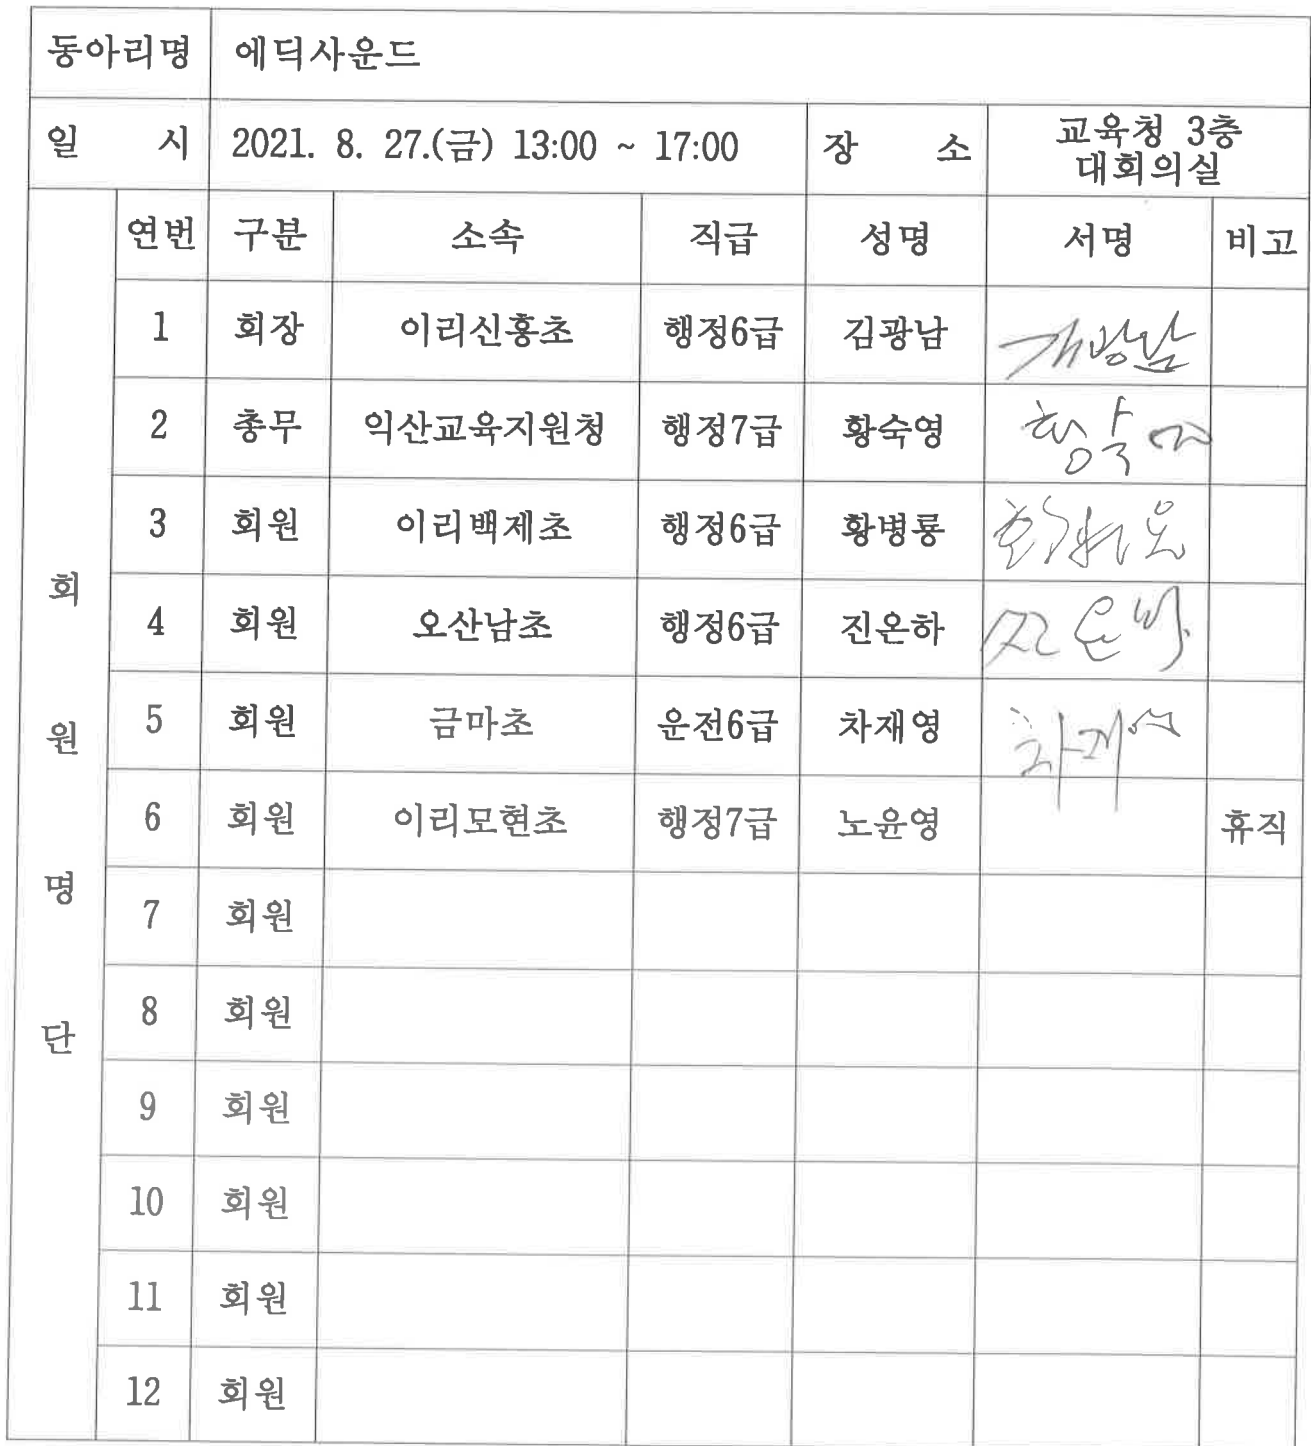 동아리명 에딕사운드
일 시 2021. 8. 27.(금) 13:00 ~ 17:00 장 소 교육청 3층
대회의실
회원명단
연번 구분 소속 직급 성명 서명 비고
1 회장 이리신흥초 행정6급 김광남
2 총무 익산교육지원청 행정7급 황숙영
3 회원 이리백제초 행정6급 황병룡
4 회원 오산남초 행정6급 진은하
5 회원 금마초 운전6급 차재영 차재영
6 회원 이리모현초 행정7급 노윤영 휴직
7 회원
8 회원
9 회원
10 회원
11 회원
12 회원